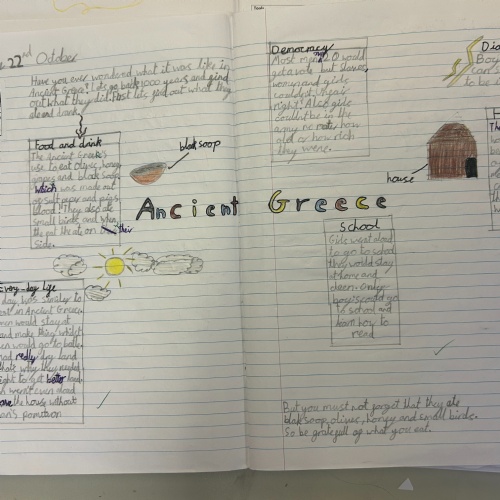 22nd October
Have you ever wondered what it was like in
Ancient Greece? Lets go back 1000 years and find
out what they did. First lets find out what they
ate and drank
Food and drink
The Ancient Greeks
use to eat olives, honey
grapes and blak soop
which was made out
of salt, viper and pigs
blood! They also ate
small birds and
the put the ate on their
side.
blak soop
Ancient Greece
Every-day life
day was similar to
in Ancient Greece
would stay at
and make things whilst
would go to battle
had really dry land
thats why they needed
fight to get better land
werent even aloud
the house without
permition
Democracy
Most men would
get a vote but slaves,
women and girls
couldn't. Unfair
right! Also girls
couldnt be in the
army no matter how
old or how rich
they were.
house
School
Girls wernt aloud
to go to school
they would stay
at home and
clean. Only
boys could go
to school and
learn how to
read
But you must not forget that they ate
blak soop, olives, honey and small birds.
So be gratefull of what you eat.